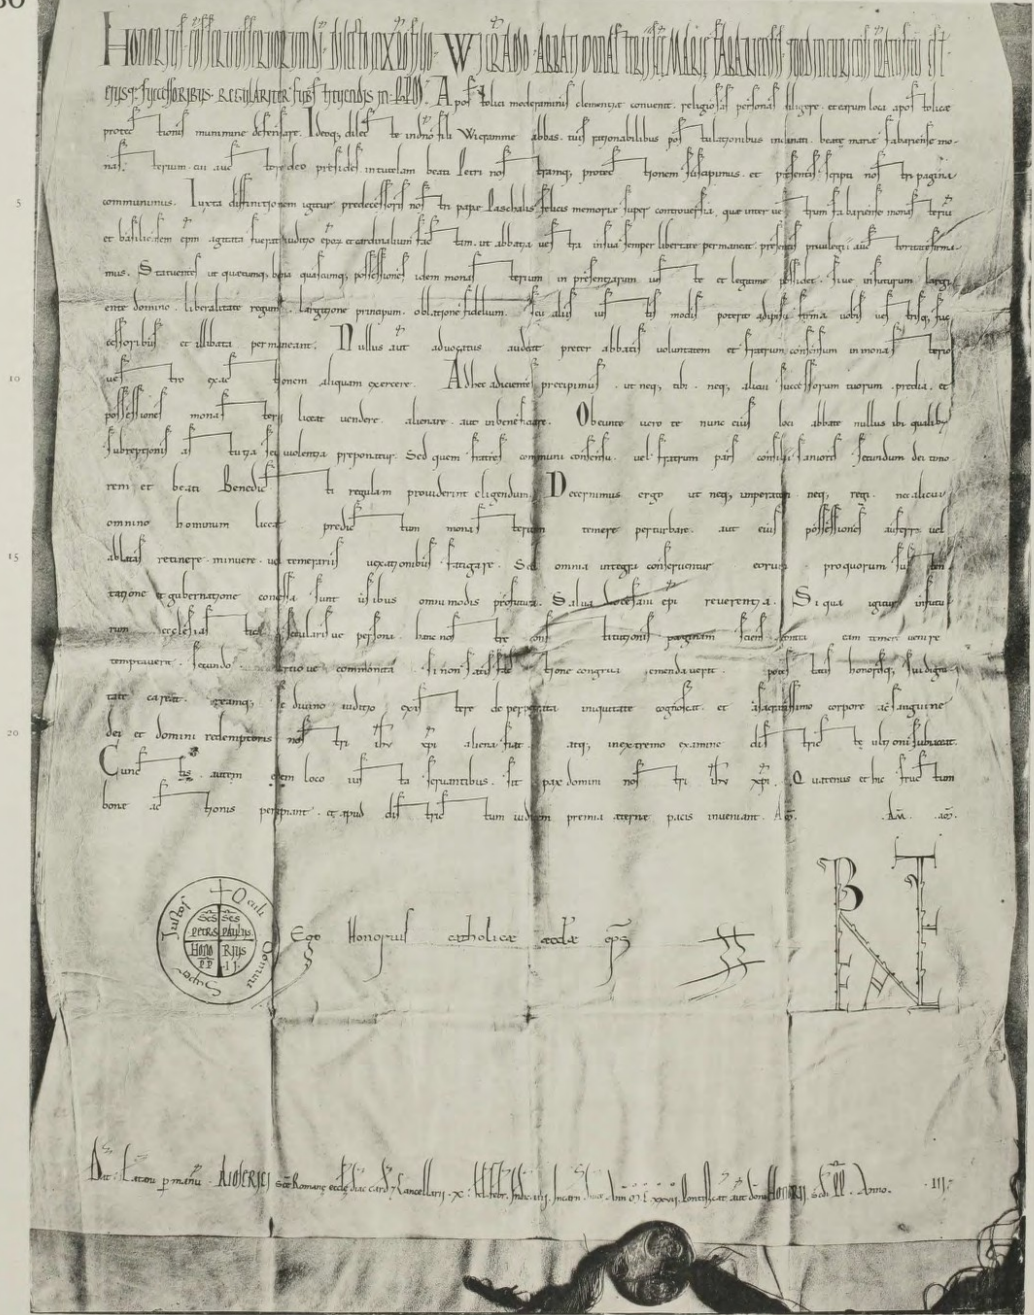 HONORIUS · EP̅S SERVUS SERVORUM DI̅ · DILECTO IN XP̅O FILIO · WICRAMO · ABBATI MONAST̅ERII SC̅E MARIE FABARIENSIS
EJUSQ; SUCCESSORIBUS · REGULARITER SUBSTITUENDIS IN · PP̅M · Apostolici moderaminis clementiae convenit · religiosas personas diligere · et earum loca apostolicae
protectionis munimine defensare. Ideoq; dilecte in dn̅o fili Wicramme abbas · tuis rationabilibus postulationibus inclinati · beatę marię Fabariense mo-
5 nasterium · cui auctore deo presides in tutelam beati Petri nostramq; protectionem suscipimus · et presentis scripti nostri pagina
communimus. Iuxta diffinitionem igitur predecessoris nostri pape Paschalis felicis memoriae super controversia, quae inter vestrum fabariense monasteriu̅
et basiliensem ep̅m agitata fuerat iuditio ep̅o₂ et cardinalium factam · ut abbatia vestra in sua semper libertate permaneat presentis privilegii auctoritate firma-
mus. Statuentes ut quecunq; bona quascunq; possessiones idem monasterium in presentiarum iuste et legitime possidet · sive in futurum largi-
ente domino · liberalitate regum · largitione principum · oblatione fidelium · seu aliis iustis modis poterit adipisci firma vobis vestrisq; suc-
cessoribus et illibata permaneant. Nullus aut̅ advocatus audeat preter abbatis voluntatem et fratrum consensum in monasterio
10 vestro exactionem aliquam exercere. Ad hec adicientes precipimus · ut neq; tibi · neq; alicui successorum tuorum · predia · et
possessiones monasterii liceat vendere · alienare · aut inbeneficiare. Obeunte vero te nunc eius loci abbate nullus ibi qualib;
subreptionis astutia seu violentia preponatur. Sed quem fratres communi consensu · vel fratrum pars consilii sanioris secundum dei timo-
rem et beati Benedicti regulam providerint eligendum. Decernimus ergo ut neq; imperatori neq; regi · nec alicui
omnino hominum liceat predictum monasterium temere perturbare · aut eius possessiones auferre vel
15 ablatas retinere · minuere · vel temerariis vexationibus fatigare. Sed omnia integra conserventur eorum · pro quorum susten-
tatione et gubernatione concessa sunt usibus omnimodis profutura. Salva diocesani ep̅i reverentia. Si qua igitur in futu-
rum ecclesiastica secularisve persona · hanc nostre constitutionis paginam sciens contra eam temere venire
temptaverit · secundo tertiove commonita · si non satisfactione congrua emendaverit · potestatis honorisq; sui digni-
tate careat. reamq; se divino iuditio existere de perpetrata iniquitate cognoscat · et a sacratissimo corpore ac sanguine
20 dei et domini redemptoris nostri ih̅u xp̅i aliena fiat · atq; in extremo examine districte ultioni subiaceat.
Cunctis autem eidem loco iusta servantibus · sit pax domini nostri ih̅u xp̅i · Quatenus et hic fructum
bonae actionis percipiant · et apud districtum iudicem premia aeterne pacis inveniant. Am̅. · Am̅ · am̅.
Oculi Domini Super Justos
SC̅S PETRS SC̅S PAULUS
HONORIUS PP II
Ego Honorius catholicae aecclae ep̅s SS
Dat · Laterani p̅ manu̅ · AIMERICI Sc̅e Romanę eccl̅ę diac̅ card̅ & Cancellarii · X · kal · febr · Indic · Incarn · · Anni o M C XXVII Pontificat̅ aut̅ domni HONORII sc̅di PP̅ · Anno · III·